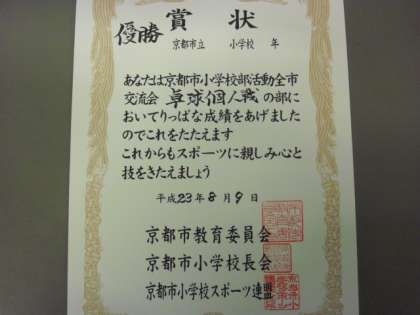 賞状
優勝
京都市立 小学校 年
あなたは京都市小学校部活動全市
交流会 卓球個人戦 の部に
おいてりっぱな成績をあげました
のでこれをたたえます
これからもスポーツに親しみ心と
技をきたえましょう
平成23年8月9日
京都市教育委員会
京都市小学校長会
京都市小学校スポーツ連盟